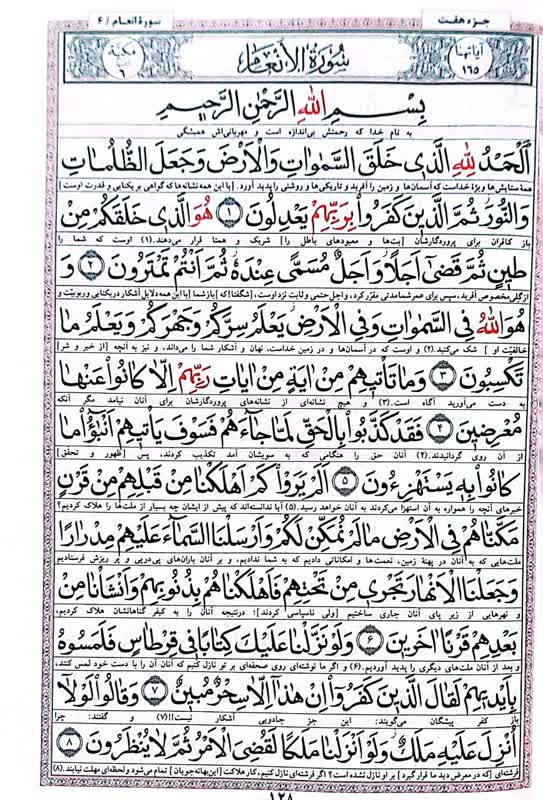 جزء هفت
سورهٔ انعام / ۶
آیاتها
۱۶۵
سُورَةُ الْأَنْعَامِ
مکیّة
۶
بِسْمِ اللهِ الرَّحْمٰنِ الرَّحِيمِ
به نام خدا که رحمتش بی‌اندازه است و مهربانی‌اش همیشگی
اَلْحَمْدُ لِلّٰهِ الَّذِي خَلَقَ السَّمٰوَاتِ وَالْاَرْضَ وَجَعَلَ الظُّلُمَاتِ
همهٔ ستایش‌ها ویژهٔ خداست که آسمان‌ها و زمین را آفرید و تاریکی‌ها و روشنی را پدید آورد. [با این همه نشانه‌ها که گواهی بر یکتایی و قدرت اوست]
وَالنُّورَ ثُمَّ الَّذِينَ كَفَرُوا بِرَبِّهِمْ يَعْدِلُونَ ۱ هُوَ الَّذِي خَلَقَكُمْ مِنْ
باز کافران برای پروردگارشان [بت‌ها و معبودهای باطل را] شریک و همتا قرار می‌دهند. (۱) اوست که شما را
طِينٍ ثُمَّ قَضٰى اَجَلًا وَاَجَلٌ مُسَمًّى عِنْدَهُ ثُمَّ اَنْتُمْ تَمْتَرُونَ ۲ وَ
از گلی مخصوص آفرید، سپس برای عمر شما مدتی مقرّر کرد، و اجل حتمی و ثابت نزد اوست، [شگفتا که] باز شما [با این همه دلایل آشکار در یکتایی و ربوبیّت و
هُوَ اللهُ فِي السَّمٰوَاتِ وَفِي الْاَرْضِ يَعْلَمُ سِرَّكُمْ وَجَهْرَكُمْ وَيَعْلَمُ مَا
خالقیّت او] شک می‌کنید. (۲) و اوست که در آسمان‌ها و در زمین خداست، نهان و آشکار شما را می‌داند، و نیز به آنچه [از خیر و شر]
تَكْسِبُونَ ۳ وَمَا تَأْتِيهِمْ مِنْ اٰيَةٍ مِنْ اٰيَاتِ رَبِّهِمْ اِلَّا كَانُوا عَنْهَا
به دست می‌آورید آگاه است. (۳) و هیچ نشانه‌ای از نشانه‌های پروردگارشان برای آنان نیامد مگر آنکه
مُعْرِضِينَ ۴ فَقَدْ كَذَّبُوا بِالْحَقِّ لَمَّا جَاءَهُمْ فَسَوْفَ يَأْتِيهِمْ اَنْبٰؤُا مَا
از آن روی گردانیدند. (۴) آنان حق را هنگامی که به سویشان آمد تکذیب کردند، پس [ظهور و تحقق]
كَانُوا بِهِ يَسْتَهْزِءُونَ ۵ اَلَمْ يَرَوْا كَمْ اَهْلَكْنَا مِنْ قَبْلِهِمْ مِنْ قَرْنٍ
خبرهای آنچه را همواره به آن استهزا می‌کردند به آنان خواهد رسید. (۵) آیا ندانسته‌اند که پیش از ایشان چه بسیار از ملت‌ها را هلاک کردیم؟
مَكَّنَّاهُمْ فِي الْاَرْضِ مَا لَمْ نُمَكِّنْ لَكُمْ وَاَرْسَلْنَا السَّمَاءَ عَلَيْهِمْ مِدْرَارًا
ملت‌هایی که به آنان در پهنهٔ زمین، نعمت‌ها و امکاناتی دادیم که به شما ندادیم، و بر آنان باران‌های پی‌درپی و پر ریزش فرستادیم
وَجَعَلْنَا الْاَنْهَارَ تَجْرِي مِنْ تَحْتِهِمْ فَاَهْلَكْنَاهُمْ بِذُنُوبِهِمْ وَاَنْشَأْنَا مِنْ
و نهرهایی از زیر پای آنان جاری ساختیم [ولی ناسپاسی کردند]؛ درنتیجه آنان را به کیفر گناهانشان هلاک کردیم،
بَعْدِهِمْ قَرْنًا اٰخَرِينَ ۶ وَلَوْ نَزَّلْنَا عَلَيْكَ كِتَابًا فِي قِرْطَاسٍ فَلَمَسُوهُ
و بعد از آنان ملت‌های دیگری را پدید آوردیم. (۶) و اگر ما نوشته‌ای روی صفحه‌ای بر تو نازل کنیم که آنان آن را با دست خود لمس کنند،
بِاَيْدِيهِمْ لَقَالَ الَّذِينَ كَفَرُوا اِنْ هٰذَا اِلَّا سِحْرٌ مُبِينٌ ۷ وَقَالُوا لَوْلَا
باز کفر پیشگان می‌گویند: این جز جادویی آشکار نیست!! (۷) و گفتند: چرا
اُنْزِلَ عَلَيْهِ مَلَكٌ وَلَوْ اَنْزَلْنَا مَلَكًا لَقُضِيَ الْاَمْرُ ثُمَّ لَا يُنْظَرُونَ ۸
فرشته‌ای [که در معرض دید ما قرار گیرد] بر او نازل نشده است؟ اگر فرشته‌ای نازل کنیم، کار هلاکت [این بهانه‌جویان] تمام می‌شود و لحظه‌ای مهلت نیابند. (۸)
۱۲۸